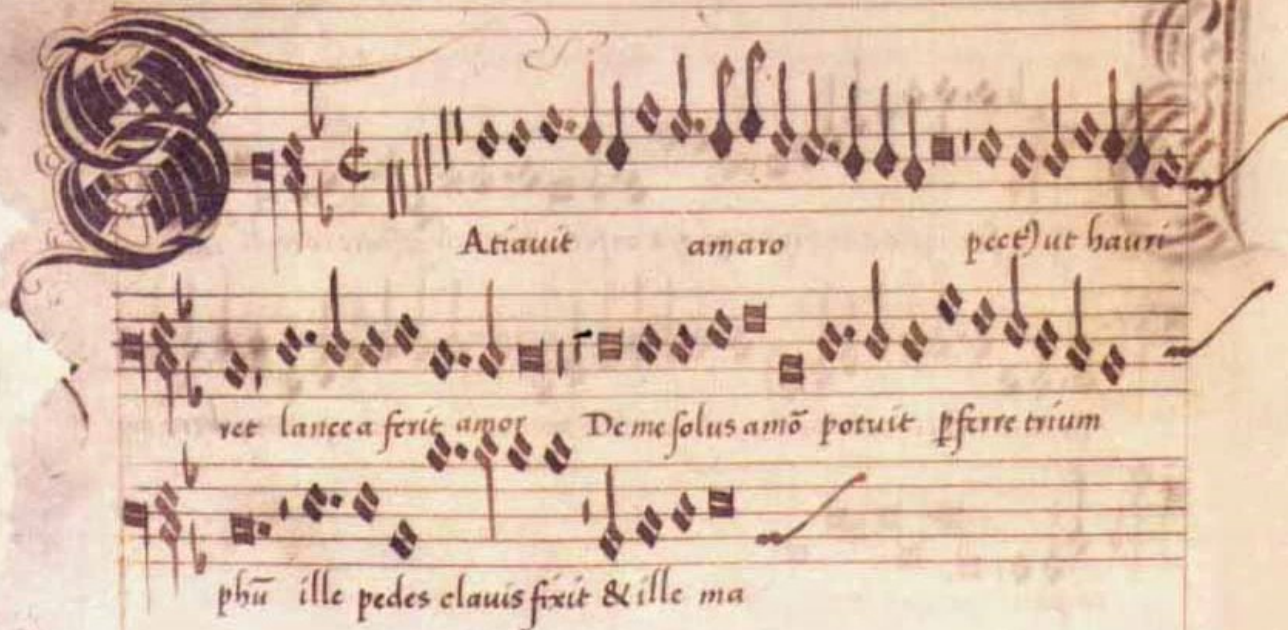 SAtiavit amaro pectꝰ ut hauri
ret lancea ferit amor De me solus amō potuit ꝑferre trium
phū ille pedes clavis fixit & ille ma